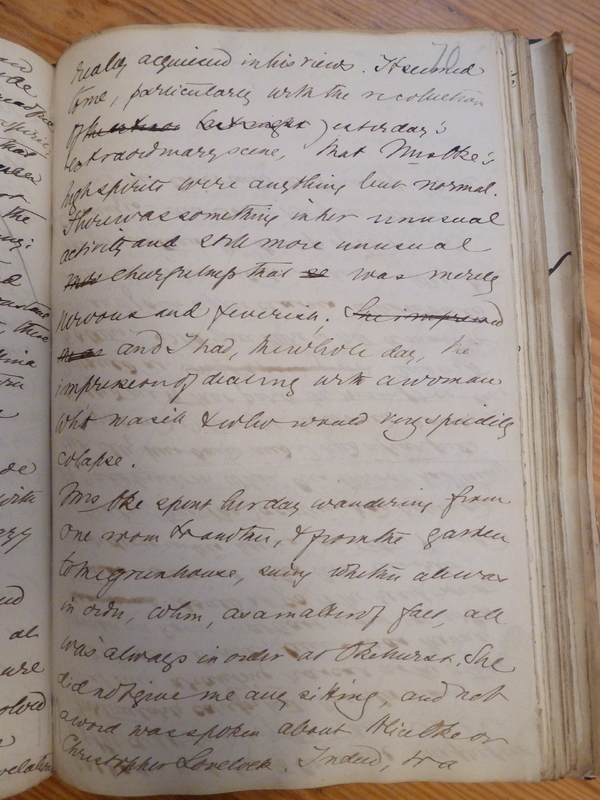 70
really acquiesced in his views. It seemed
to me, particularly with the recollection
of yesterday's
extraordinary scene, that Mrs Oke's
high spirits were anything but normal.
There was something in her unusual
activity and still more unusual
cheerfulness that was merely
nervous and feverish. She impressed
and I had, the whole day, the
impression of dealing with a woman
who was ill & who would very speedily
colapse.
Mrs Oke spent her day wandering from
one room to another, & from the garden
to the greenhouse, seeing whether all was
in order, when, as a matter of fact, all
was always in order at Okehurst. She
did not give me any sitting, and not
a word was spoken about Alice Oke or
Christopher Lovelock. Indeed, to a